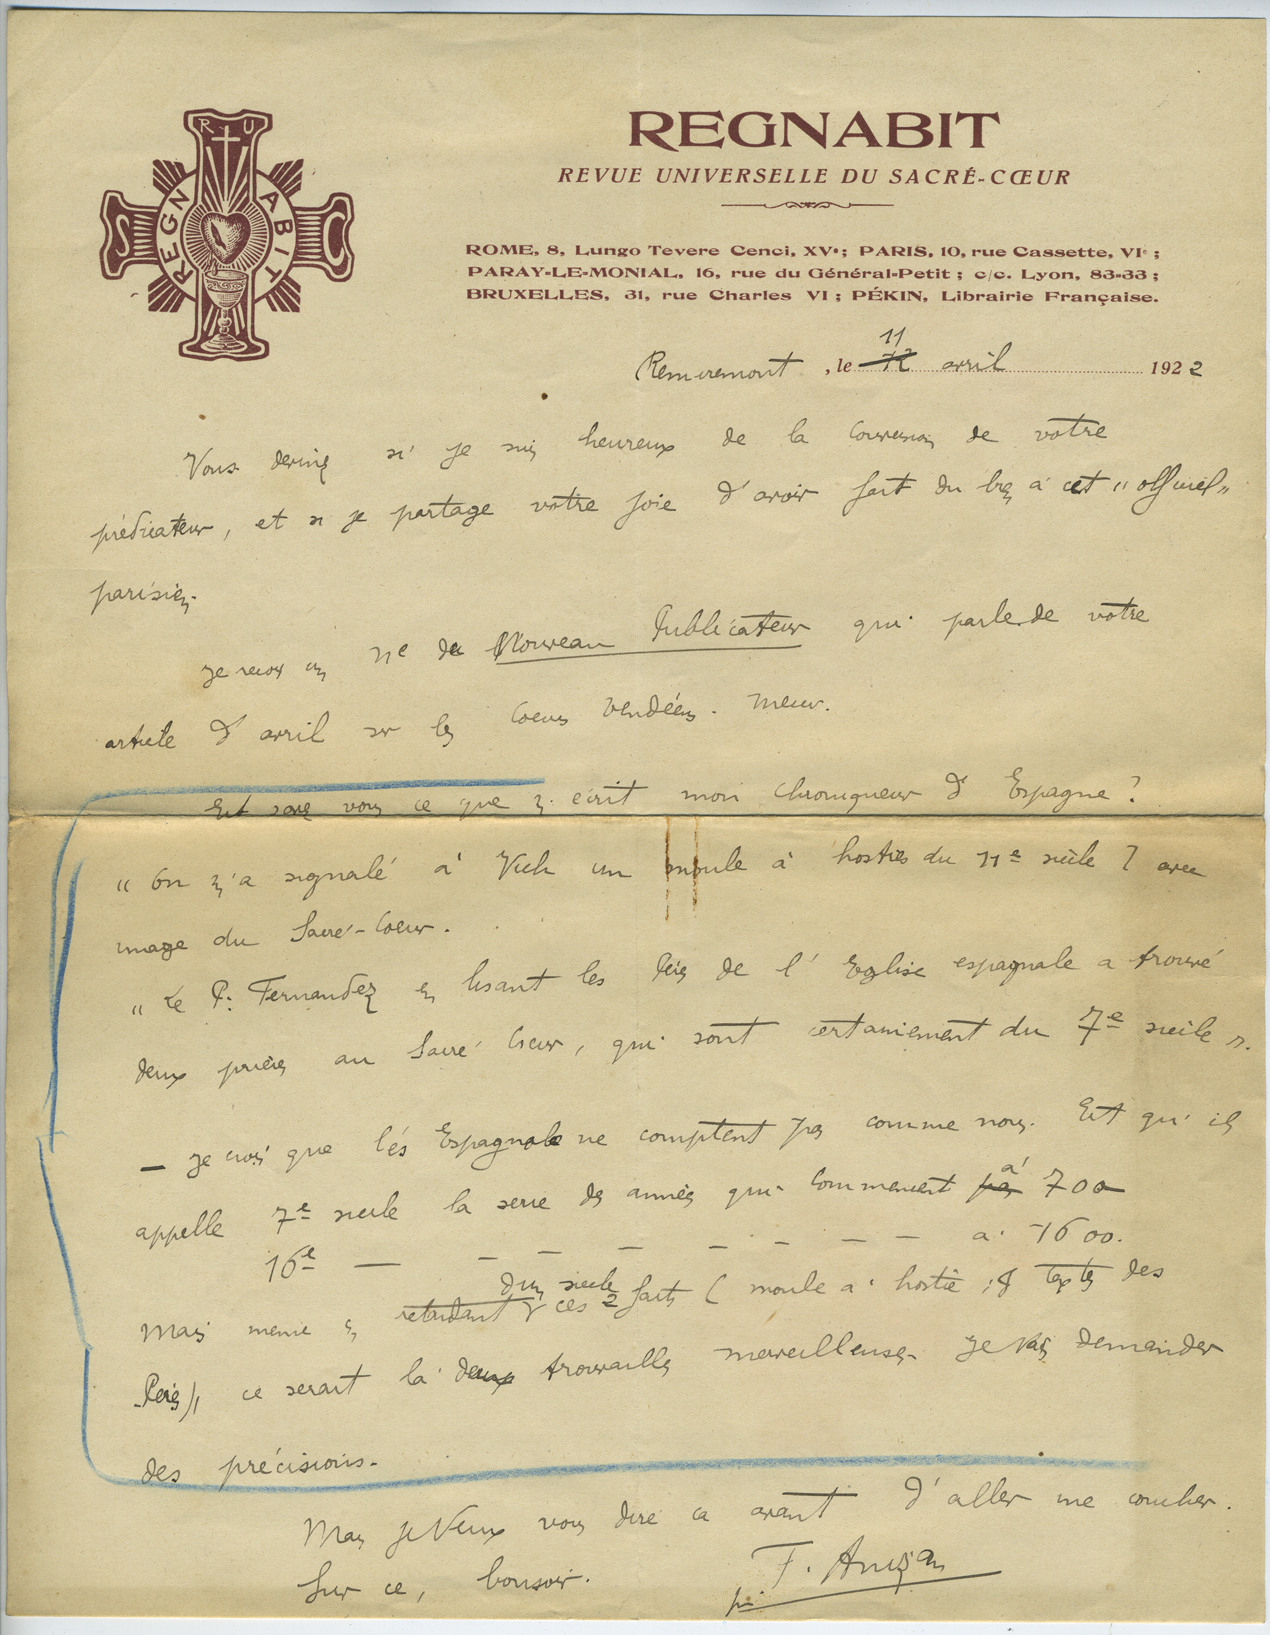 R U
S REGNABIT C
REGNABIT
REVUE UNIVERSELLE DU SACRÉ-CŒUR
ROME, 8, Lungo Tevere Cenci, XVe; PARIS, 10, rue Cassette, VIe;
PARAY-LE-MONIAL, 16, rue du Général-Petit; c/c. Lyon, 83-33;
BRUXELLES, 31, rue Charles VI; PÉKIN, Librairie Française.
11
Remiremont, le 12 avril 1922
Vous devinez si je suis heureux de la conversion de votre
prédicateur, et si je partage votre joie d'avoir fait du bien à cet "officiel"
parisien.
Je reçois un n° du Nouveau Publicateur qui parle de votre
article d'avril sur les Coeurs vendéens. Merci.
Et savez vous ce que m'écrit mon chroniqueur d'Espagne?
"On m'a signalé à Vich un moule à hosties du 11e siècle avec
image du Sacré-Coeur.
"Le P. Fernandez en lisant les Pères de l'Eglise espagnole a trouvé
deux prières au Sacré Coeur, qui sont certainement du 7e siècle ".
— Je crois que les Espagnols ne comptent pas comme nous. Est qu'ils
appelle 7e siecle la serie des années qui commencent pas à 700
16e — — — — — — — — a 1600.
Mais meme en retardant d'un siecle ces 2 faits (moule a hostie, & textes des
Pères), ce serait là deux trouvailles merveilleuses. Je vais demander
des précisions.
Mais je veux vous dire ca avant d'aller me coucher.
Sur ce, bonsoir.
F. Anizan